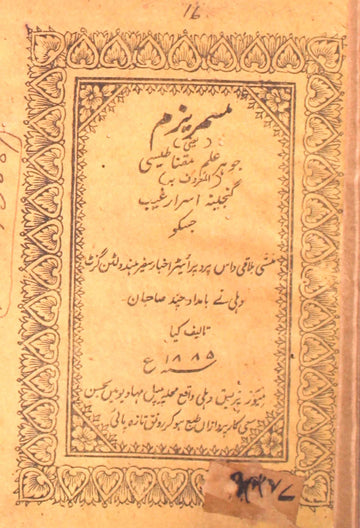 16
مسمریزم
(یعنی)
جوہر علم مقناطیسی
(المعروف بہ)
گنجینۂ اسرار غیب
جسکو
منشی داس پروپرائیٹر اخبار سفیر ہند و لٹن گزٹ
دہلی نے بامداد چند صاحبان
تالیف کیا
۱۸۸۵ع
میور پریس دہلی واقع محلہ پیپل مہادیو میں بحسن
سعی کارپردازان طبع ہو کر رونق تازہ پائی